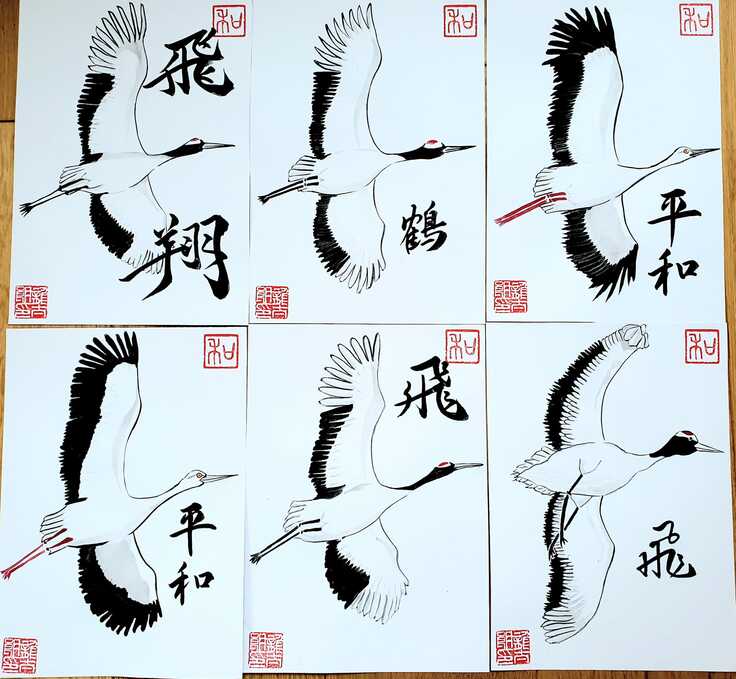 和
飛翔
和
鶴
和
平和
和
平和
和
飛
和
飛